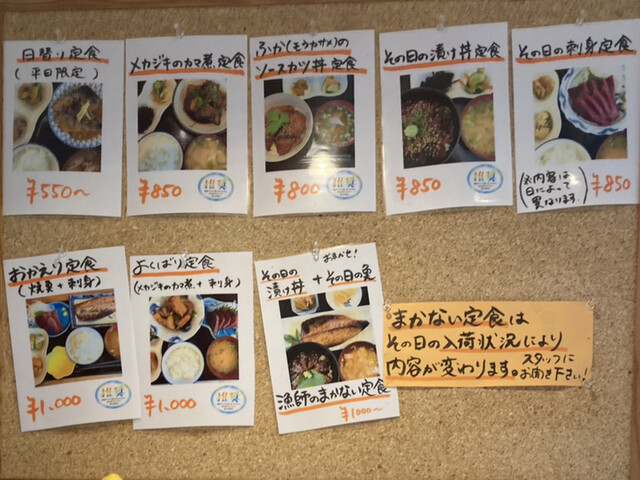 日替り定食
(平日限定)
¥550～
メカジキのカマ煮定食
¥850
ふか(モウカサメ)の
ソースカツ丼定食
¥800
その日の漬け丼定食
¥850
その日の刺身定食
(※内容は
日によって
異なります)
¥850
おかえり定食
(焼魚+刺身)
¥1,000
よくばり定食
(メカジキのカマ煮+刺身)
¥1,000
おまかせ!
その日の
漬け丼 + その日の魚
漁師のまかない定食
¥1000～
まかない定食は
その日の入荷状況により
内容が変わります。スタッフに
お聞き下さい!